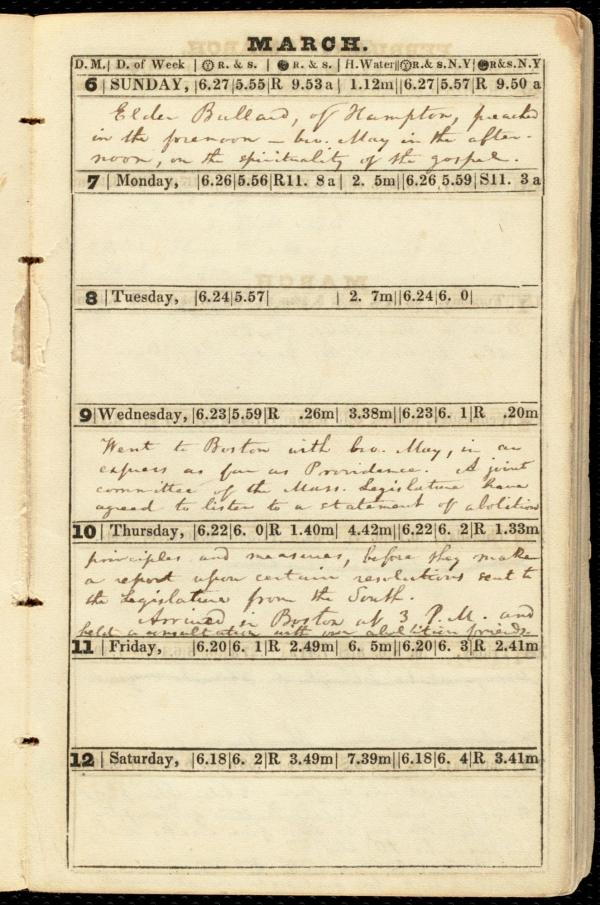 MARCH.
D. M. | D. of Week | R. & s. | R. & s. | H. Water || R. & s. N.Y | R&s. N.Y
6 | SUNDAY, |6.27|5.55|R 9.53 a| 1.12m||6.27|5.57|R 9.50 a
Elder Bullard, of Hampton, preached
in the forenoon — bro. May in the after-
noon, on the spirituality of the gospel.
7 | Monday, |6.26|5.56|R11. 8 a| 2. 5m||6.26|5.59|S11. 3 a
8 | Tuesday, |6.24|5.57| | 2. 7m||6.24|6. 0|
9|Wednesday, |6.23|5.59|R .26m| 3.38m||6.23|6. 1|R .20m
Went to Boston with bro. May, in an
express as far as Providence. A joint
committee of the Mass. Legislature have
agreed to listen to a statement of abolition
10 | Thursday, |6.22|6. 0|R 1.40m| 4.42m||6.22|6. 2|R 1.33m
principles and measures, before they make
a report upon certain resolutions sent to
the Legislature from the South.
Arrived in Boston at 3 P.M. and
held a consultation with our abolition friends.
11 | Friday, |6.20|6. 1|R 2.49m| 6. 5m||6.20|6. 3|R 2.41m
12 | Saturday, |6.18|6. 2|R 3.49m| 7.39m||6.18|6. 4|R 3.41m